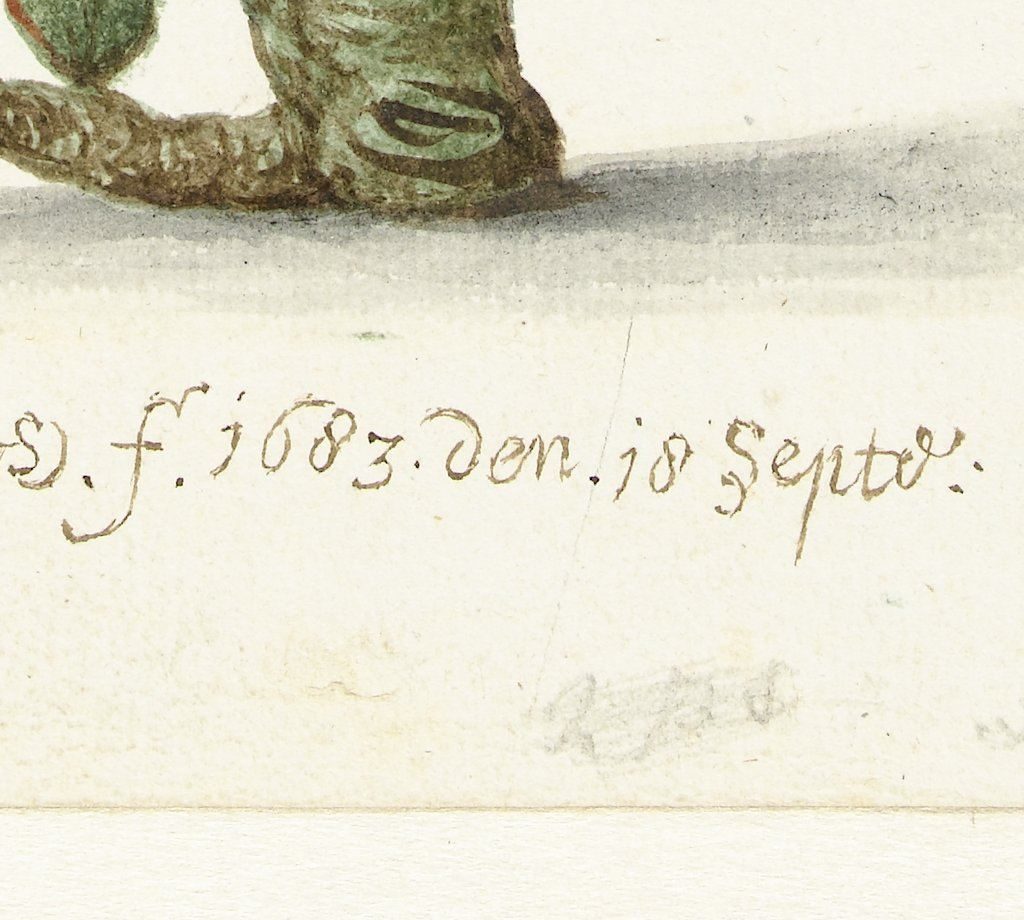 S). f. 1683. den. 18 Septr: